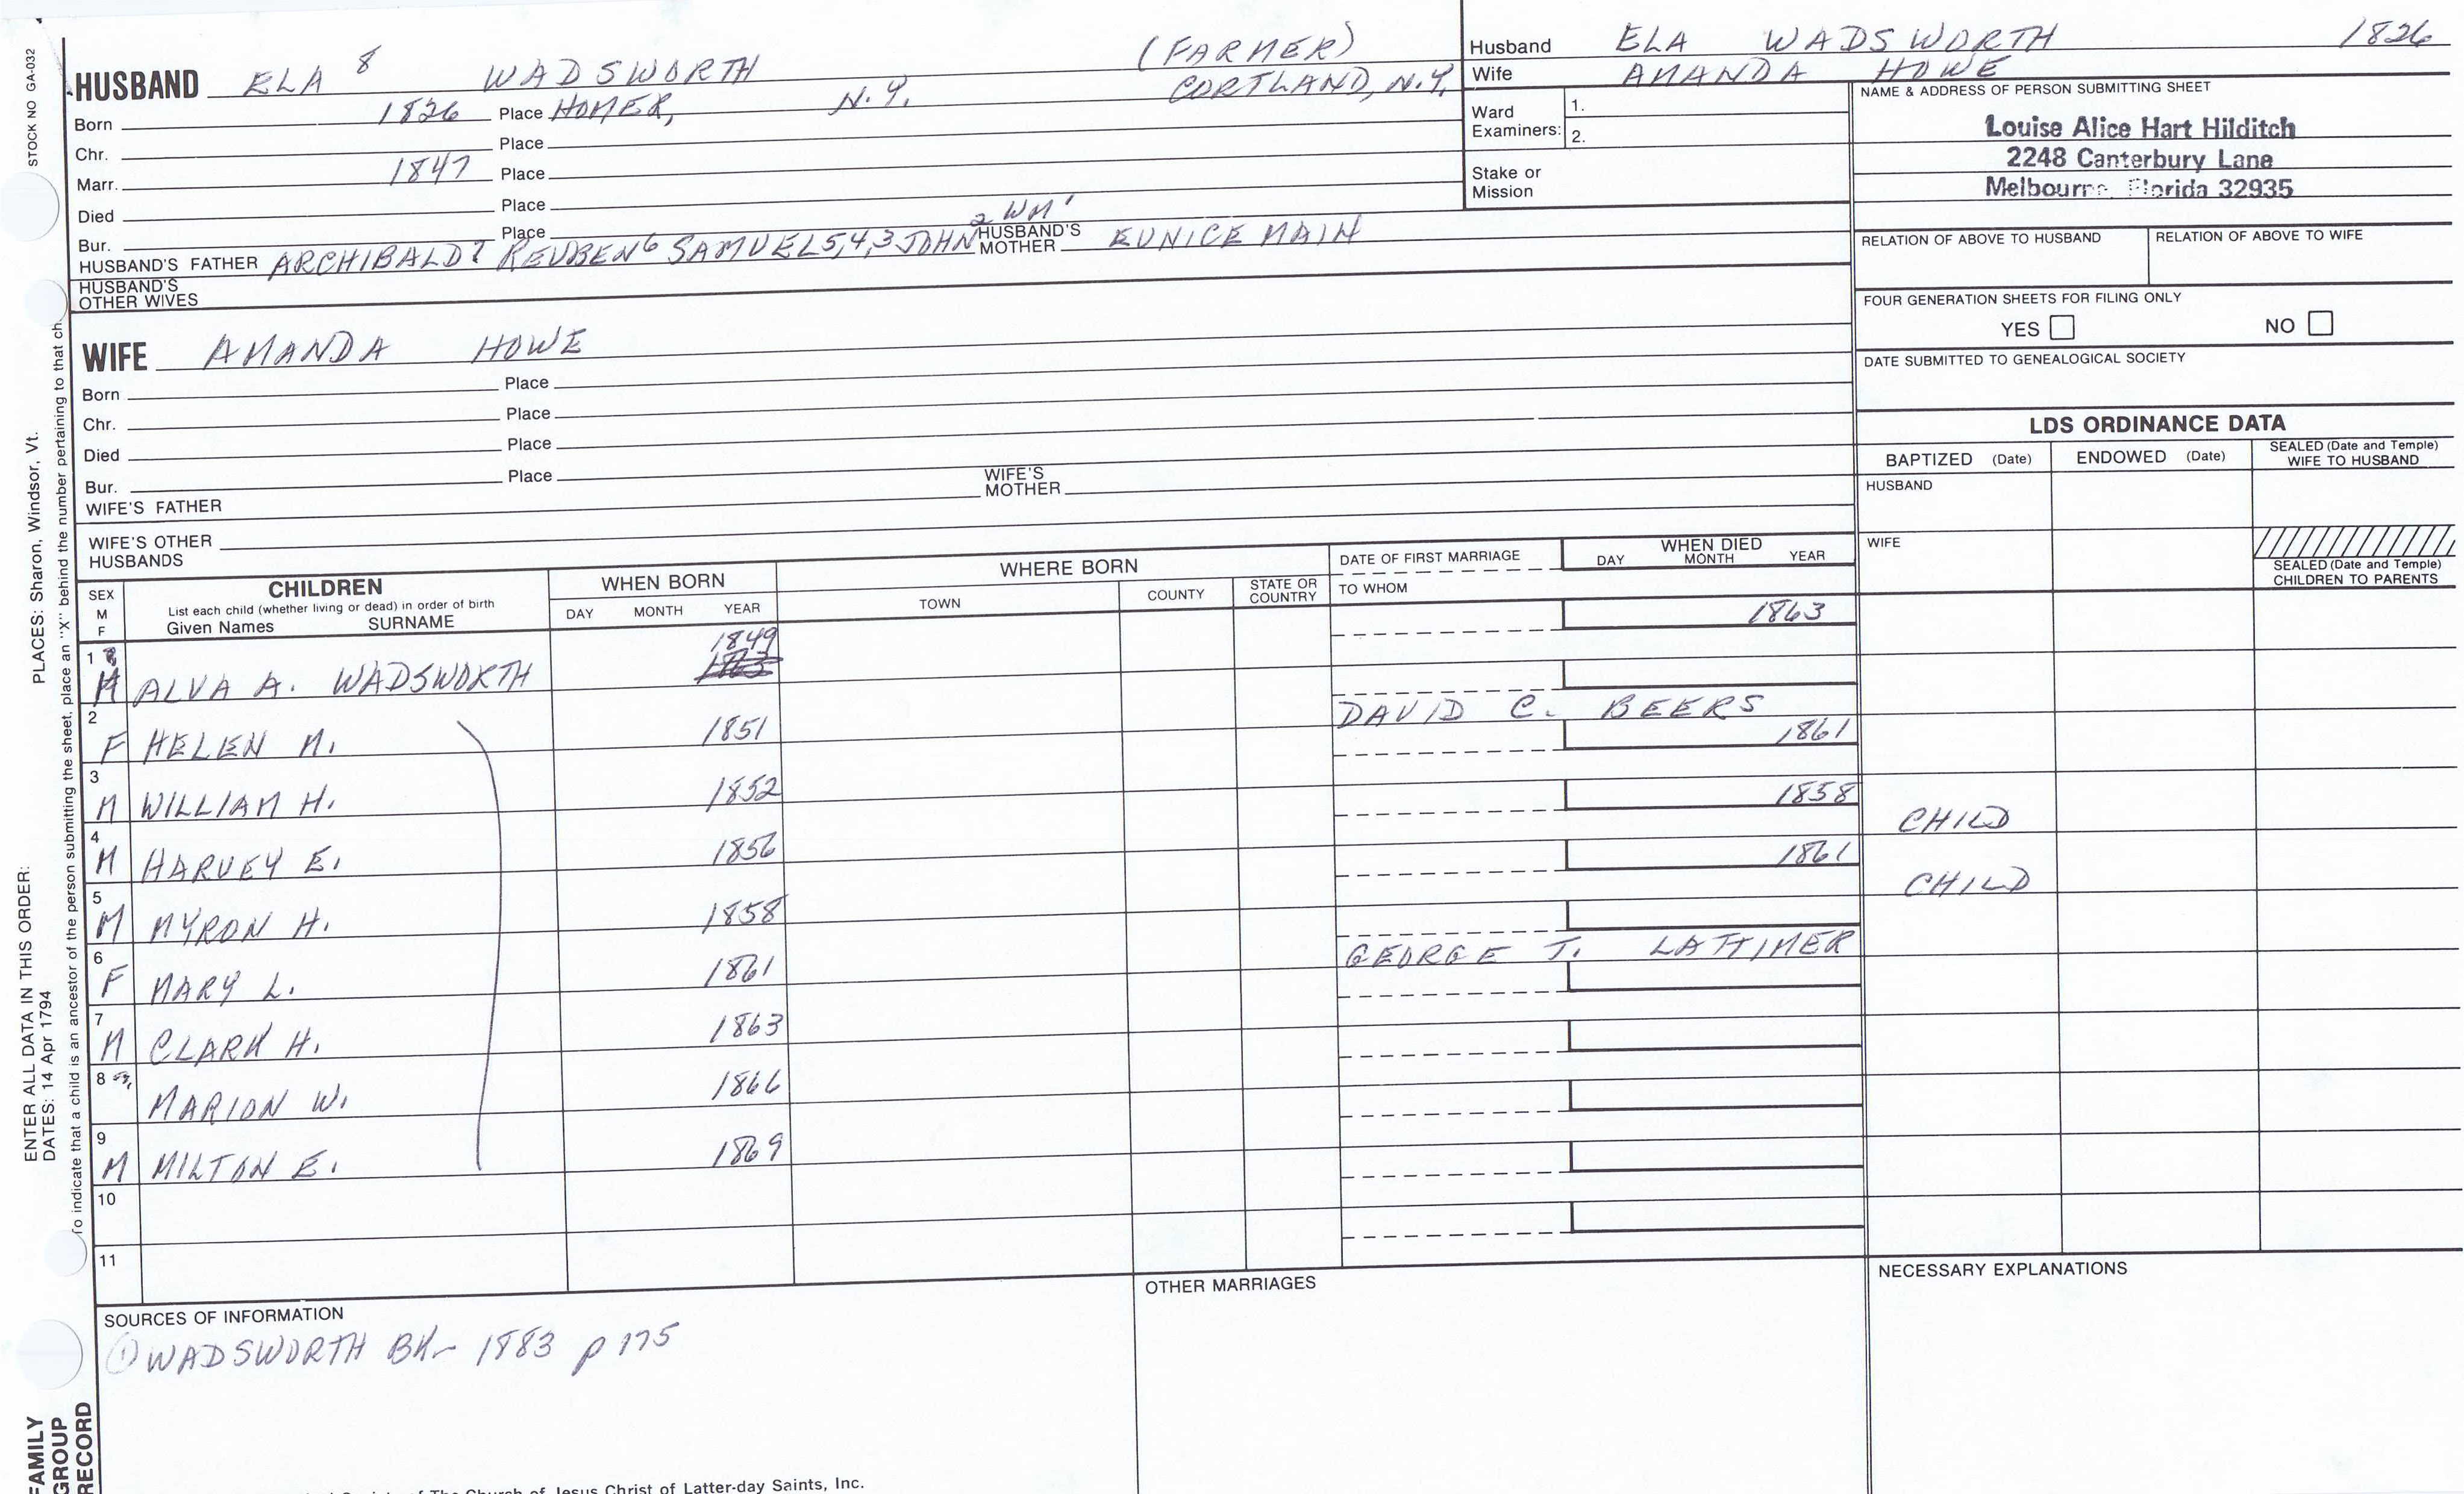 STOCK NO GA-032
PLACES: Sharon, Windsor, Vt.
ENTER ALL DATA IN THIS ORDER:
DATES: 14 Apr 1794
To indicate that a child is an ancestor of the person submitting the sheet, place an "X" behind the number pertaining to that ch
FAMILY
GROUP
RECORD
HUSBAND ELA 8 WADSWORTH (FARMER)
Born 1826 Place HOMER, N.Y. CORTLAND, N.Y.
Chr. Place
Marr. 1847 Place
Died Place
Bur. Place
HUSBAND'S FATHER ARCHIBALD 7 REUBEN 6 SAMUEL 5,4,3 JOHN 2 WM' HUSBAND'S MOTHER EUNICE MAIN
HUSBAND'S
OTHER WIVES
WIFE AMANDA HOWE
Born Place
Chr. Place
Died Place
Bur. Place
WIFE'S FATHER WIFE'S MOTHER
WIFE'S OTHER
HUSBANDS
Husband ELA WADSWORTH 1826
Wife AMANDA HOWE
Ward
Examiners: 1.
2.
Stake or
Mission
NAME & ADDRESS OF PERSON SUBMITTING SHEET
Louise Alice Hart Hilditch
2248 Canterbury Lane
Melbourne, Florida 32935
RELATION OF ABOVE TO HUSBAND RELATION OF ABOVE TO WIFE
FOUR GENERATION SHEETS FOR FILING ONLY
YES NO
DATE SUBMITTED TO GENEALOGICAL SOCIETY
LDS ORDINANCE DATA
BAPTIZED (Date) ENDOWED (Date) SEALED (Date and Temple)
WIFE TO HUSBAND
HUSBAND
WIFE
SEALED (Date and Temple)
CHILDREN TO PARENTS
SEX
M
F
CHILDREN
List each child (whether living or dead) in order of birth
Given Names SURNAME
WHEN BORN
DAY MONTH YEAR
WHERE BORN
TOWN COUNTY STATE OR
COUNTRY
DATE OF FIRST MARRIAGE
TO WHOM
WHEN DIED
DAY MONTH YEAR
1 M ALVA A. WADSWORTH 1849 1863
2 F HELEN M. 1851 DAVID C. BEERS
3 M WILLIAM H. 1852 1861
4 M HARVEY E. 1856 1858 CHILD
5 M MYRON H. 1858 1861 CHILD
6 F MARY L. 1861 GEORGE T. LATTIMER
7 M CLARK H. 1863
8 MARION W. 1866
9 M MILTON E. 1869
10
11
SOURCES OF INFORMATION
① WADSWORTH BK- 1883 p 175
OTHER MARRIAGES
NECESSARY EXPLANATIONS
The Church of Jesus Christ of Latter-day Saints, Inc.